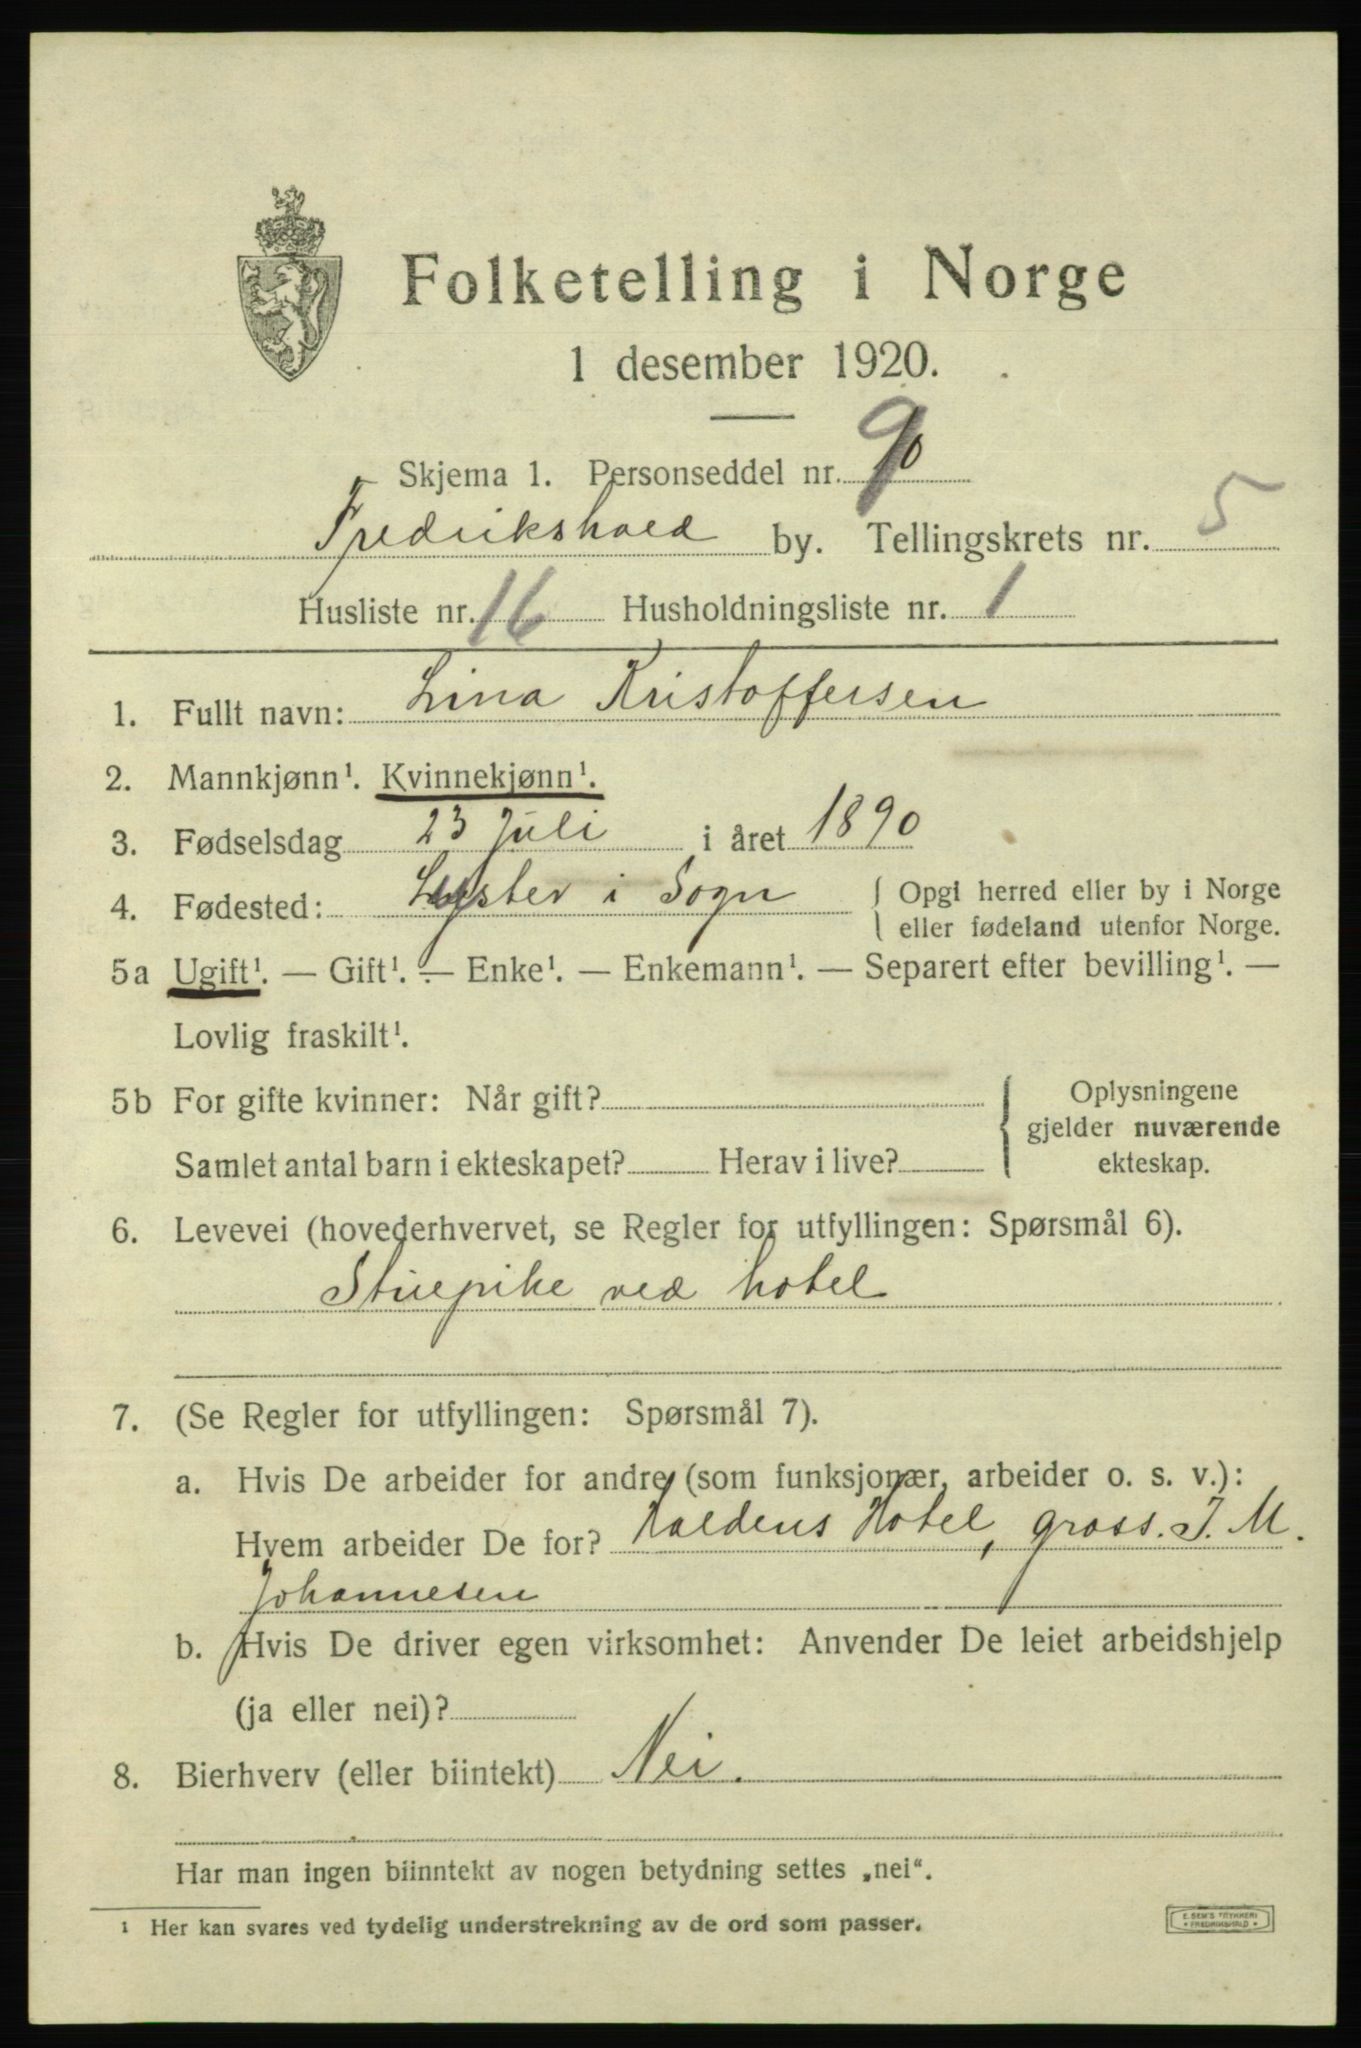 Folketelling i Norge
1 desember 1920.
Skjema 1. Personseddel nr. 9
Fredrikshald by. Tellingskrets nr. 5
Husliste nr. 16 Husholdningsliste nr. 1
1. Fullt navn: Lina Kristoffersen
2. Mannkjønn¹. Kvinnekjønn¹.
3. Fødselsdag 23 Juli i året 1890
4. Fødested: Lyster i Sogn { Opgi herred eller by i Norge
eller fødeland utenfor Norge.
5a Ugift¹. — Gift¹. — Enke¹. — Enkemann¹. — Separert efter bevilling¹. —
Lovlig fraskilt¹.
5b For gifte kvinner: Når gift? { Oplysningene
gjelder nuværende
Samlet antal barn i ekteskapet? Herav i live? ekteskap.
6. Levevei (hovederhvervet, se Regler for utfyllingen: Spørsmål 6).
Stuepike ved hotel
7. (Se Regler for utfyllingen: Spørsmål 7).
a. Hvis De arbeider for andre (som funksjonær, arbeider o. s. v.):
Hvem arbeider De for? Haldens Hotel, gross. J. M.
Johannesen
b. Hvis De driver egen virksomhet: Anvender De leiet arbeidshjelp
(ja eller nei)?
8. Bierhverv (eller biintekt) Nei.
Har man ingen biinntekt av nogen betydning settes „nei“.
¹ Her kan svares ved tydelig understrekning av de ord som passer.
E. SEM'S TRYKKERI
• FREDRIKSHALD •